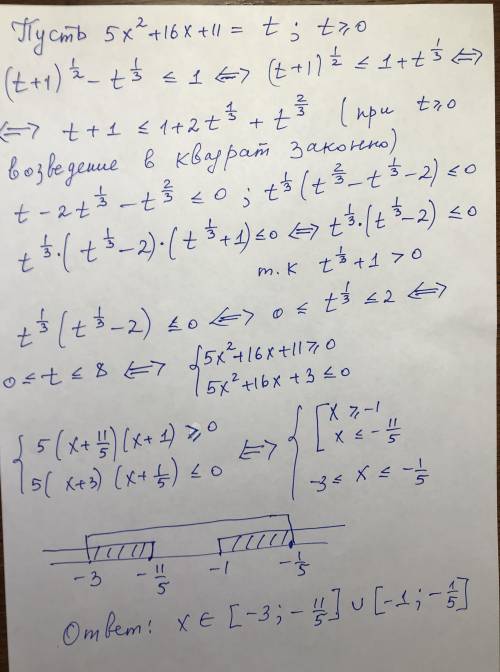 Пусть 5x²+16x+11 = t ; t ≥ 0
(t+1)^½ - t^⅓ ≤ 1 <=> (t+1)^½ ≤ 1+t^⅓ <=>
<=> t+1 ≤ 1+2t^⅓ + t^⅔ (при t≥0
возведение в квадрат законно)
t - 2t^⅓ - t^⅔ ≤ 0 ; t^⅓(t^⅔ - t^⅓ - 2) ≤ 0
t^⅓·(t^⅓-2)·(t^⅓+1) ≤ 0 <=> t^⅓·(t^⅓-2) ≤ 0
т.к t^⅓+1 > 0
t^⅓(t^⅓-2) ≤ 0 <=> 0 ≤ t^⅓ ≤ 2 <=>
0 ≤ t ≤ 8 <=> { 5x²+16x+11 ≥ 0
5x²+16x+3 ≤ 0
{ 5(x+11/5)(x+1) ≥ 0 <=> { [ x ≥ -1
x ≤ -11/5
5(x+3)(x+1/5) ≤ 0 -3 ≤ x ≤ -1/5
-3 -11/5 -1 -1/5
Ответ: x ∈ [-3; -11/5] ∪ [-1; -1/5]